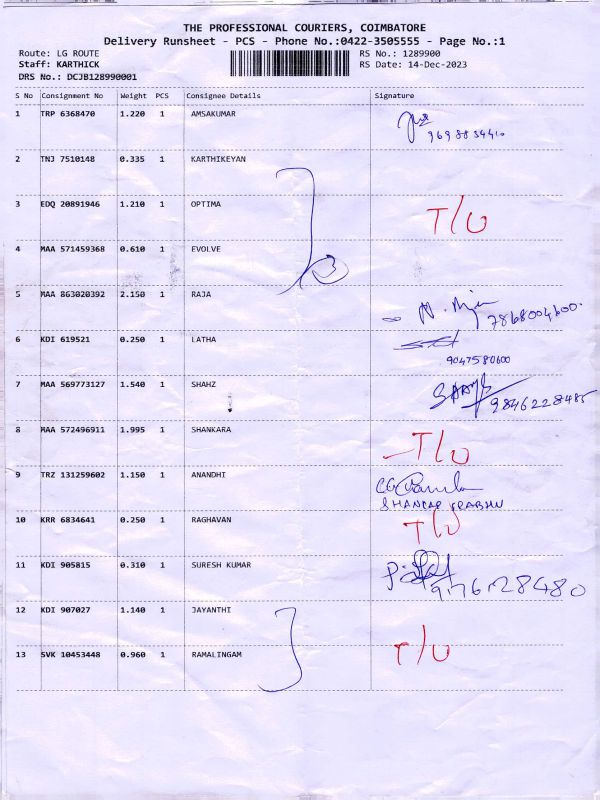 THE PROFESSIONAL COURIERS, COIMBATORE
Delivery Runsheet - PCS - Phone No.:0422-3505555 - Page No.:1
Route: LG ROUTE RS No.: 1289900
Staff: KARTHICK RS Date: 14-Dec-2023
DRS No.: DCJB128990001
S No Consignment No Weight PCS Consignee Details Signature
1 TRP 6368470 1.220 1 AMSAKUMAR
2 TNJ 7510148 0.335 1 KARTHIKEYAN
3 EDQ 20891946 1.210 1 OPTIMA T/U
4 MAA 571459368 0.610 1 EVOLVE
5 MAA 863020392 2.150 1 RAJA 7868004600.
6 KDI 619521 0.250 1 LATHA
9047580600
7 MAA 569773127 1.540 1 SHAHZ 9846228485
8 MAA 572496911 1.995 1 SHANKARA T/U
9 TRZ 131259602 1.150 1 ANANDHI
10 KRR 6834641 0.250 1 RAGHAVAN T/U
11 KDI 905815 0.310 1 SURESH KUMAR
12 KDI 907027 1.140 1 JAYANTHI
13 SVK 10453448 0.960 1 RAMALINGAM T/U